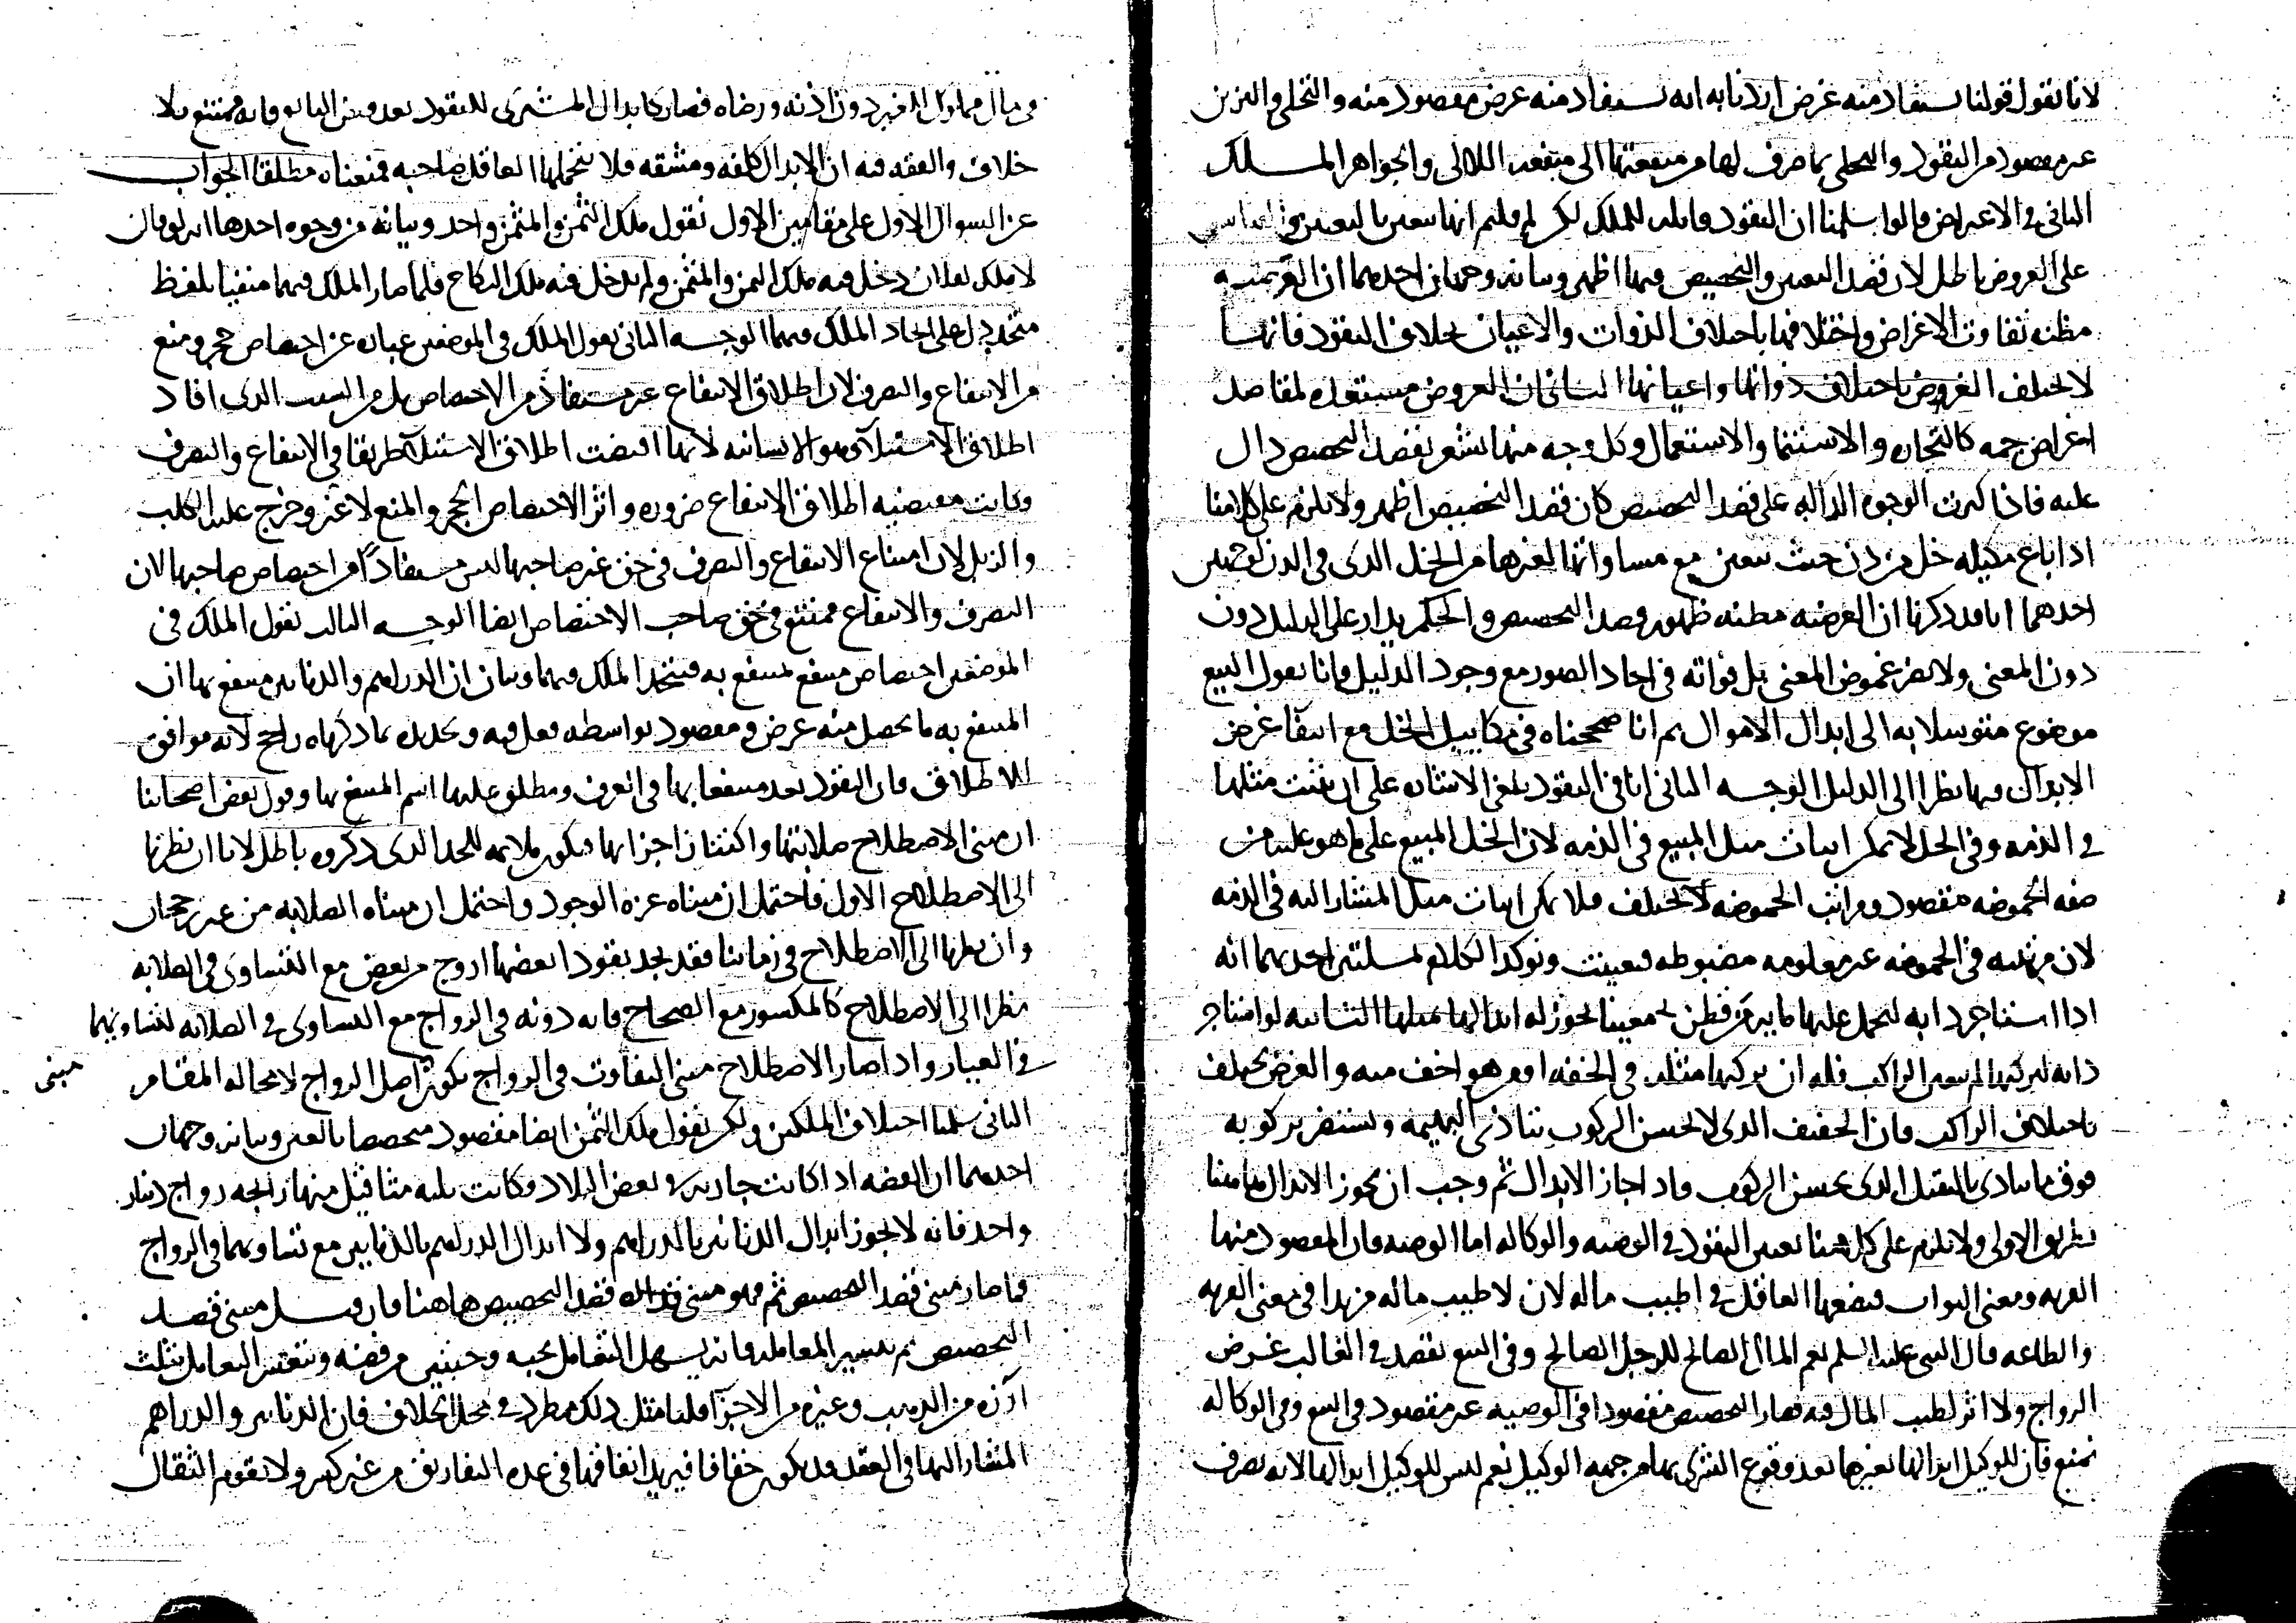 لانا نقول قولنا يستفاد منه غرض اردنا به انه يستفاد منه غرض مقصود منه والتحلي والتزين
غير مقصود من النقود والتحلي بما صرف لها من منفعتها الى منفعة اللالى والجواهر المسلك
الثاني في الاعتراض قالوا سلمنا ان النقود قابلة للملك لكن لم قلتم انها تتعين بالتعيين والقياس
على العروض باطل لان قصد التعيين والتخصيص فيها اظهر وبيانه وجهان احدهما ان العرضيه
مظنه تفاوت الاغراض واختلافها باختلاف الذوات والاعيان بخلاف النقود فانها
لا تختلف الغروض باختلاف ذواتها واعيانها الثاني ان العروض مستعده لمقاصد
اغراض جمه كالتجاره والاستنما والاستعمال وكل وجه منها يشعر بقصد التخصيص دال
عليه فاذا كثرت الوجوه الداله على قصد التخصيص كان قصد التخصيص اظهر ولا يلزم على كلامنا
اذا باع مكيله خل من دن حيث تتعين مع مساواتها لغيرها من الخل الذي في الدن لوجهين
احدهما انا قد ذكرنا ان العرضيه مظنه ظهور قصد التخصيص والحكم يدار على الدليل دون
دون المعنى ولا يضر غموض المعنى بل فواته في احاد الصور مع وجود الدليل فانا نقول البيع
موضوع متوسلا به الى ابدال الاموال ثم انا صححناه في مكاييل الخل مع انتفآ غرض
الابدال فيها نظرا الى الدليل الوجه الثاني انا في النقود نلغي الاشاره على ان يثبت مثلها
في الذمه وفي الخل لا يمكن اثبات مثل المبيع في الذمه لان الخل المبيع على ما هو عليه من
صفه الحموضه مقصود ومراتب الحموضه لا تختلف فلا يمكن اثبات مثل المشار اليه في الذمه
لان مرتبته في الحموضه غير معلومه مضبوطه فتعينت ونوكد الكلام بمسلتين احديهما انه
اذا استاجر دابه ليحمل عليها مايه من قطن معينا يجوز له ابدالها بمثلها الثانيه لو استاجر
دابه ليركبها لم يتعين الراكب فله ان يركبها مثله في الخفه او من هو اخف منه والغرض يختلف
باختلاف الراكب فان الخفيف الذي لا يحسن الركوب تتاذى البهيمه وتستضر بركوبه
فوق ما تتاذى بالثقيل الذي يحسن الركوب فاذا جاز الابدال ثم وجب ان يجوز الابدال هاهنا
بطريق الاولى ولا يلزم على كلامنا تعيين النقود في الوصيه والوكاله اما الوصيه فان المقصود منها
القربه ومعنى الثواب فيضعها العاقل في اطيب ماله لان لاطيب ماله مزيدا في معنى القربه
والطاعه قال النبي عليه السلم نعم المال الصالح للرجل الصالح وفي البيع نقصد في الغالب غرض
الرواج ولا اثر لطيب المال فيه فصار التخصيص مقصودا في الوصيه غير مقصود في البيع وفي الوكاله
نمنع فان للوكيل ابدالها بغيرها بعد وقوع الشرى بها من جهه الوكيل نعم ليس للوكيل ابدالها لانه تصرف
في مال مملوك للغير دون اذنه ورضاه فصار كابدال المشترى للنقود بعد قبض البايع فانه ممتنع بلا
خلاف والفقه فيه ان الابدال كلفه ومشقه فلا يتحملها العاقل صاحبه فمنعناه مطلقا الجواب
عن السوال الاول على مقامين الاول نقول ملك الثمن والمثمن واحد وبيانه من وجوه احدها انه لو قال
لا ملك لفلان دخل فيه ملك الثمن والمثمن ولم يدخل فيه ملك النكاح فلما صار الملك فيهما منفيا بلفظ
متحد دل على اتحاد الملك فيهما الوجه الثاني نقول الملك في الموضعين عباره عن اختصاص حجر ومنع
من الانتفاع والتصرف لان اطلاق الانتفاع غير مستفاد من الاختصاص بل من السبب الذي افاد
اطلاق الاستيلآ وهو الانسانيه لانها اقتضت اطلاق الاستيلآ طريقا في الانتفاع والتصرف
وكانت مقتضيه اطلاق الانتفاع ضروره واثر الاختصاص الحجر والمنع لا غير وخرج عليه الكلب
والزبل لان امتناع الانتفاع والتصرف في حق غير صاحبها ليس مستفادًا من اختصاص صاحبها لان
التصرف والانتفاع ممتنع في حق صاحب الاختصاص ايضا الوجه الثالث نقول الملك في
الموضعين اختصاص منتفع بمنتفع به فيتحد الملك فيهما وبيان ان الدراهم والدنانير منتفع بها ان
المنتفع به ما يحصل منه غرض ومقصود بواسطه فعل فيه وتحديده بما ذكرناه راجح لانه موافق
للاطلاق فان النقود تعد منتفعا بها في العرف ومطلق عليها اسم المنتفع بها وقول بعض اصحابنا
ان مبنى الاصطلاح صلابتها واكتناز اجزايها فيكون ملايمه للحد الذي ذكروه باطل لانا ان نظرنا
الى الاصطلاح الاول فاحتمل ان مبناه عزه الوجود واحتمل ان مبناه الصلابه من غير رجحان
وان نظرنا الى الاصطلاح في زماننا فقد نجد نقودا بعضها اروج من بعض مع التساوي في الصلابه
نظرا الى الاصطلاح كالمكسور مع الصحاح فانه دونه في الرواج مع التساوي في الصلابه لتساويهما
في العيار واذا صار الاصطلاح مبنى التفاوت في الرواج يكون اصل الرواج لا محاله المقام
مبنى
الثاني سلمنا اختلاف الملكين ولكن نقول ملك الثمن ايضا مقصود متخصصا بالعين وبيانه وجهان
احدهما ان الفضه اذا كانت جاريه في بعض البلاد وكانت ثلثه مثاقيل منها رايجه رواج دينار
واحد فانه لا يجوز ابدال الدنانير بالدراهم ولا ابدال الدراهم بالدنانير مع تساويهما في الرواج
فما صار مبنى قصد التخصيص ثم فهو مبنى قصد التخصيص هاهنا فان قيل مبنى قصد
التخصيص ثم تيسير المعامله فانه يسهل التعامل بحبه وحبتين من فضه ويتعسر التعامل بثلث
ارزه من الذهب وغيره من الاجزآ قلنا مثل ذلك مطرد في محل الخلاف فان الدنانير والدراهم
المشار اليها في العقد قد يكون خفافا فيريد انفاقها في عده التفاريق من غير كسر ولا تقوم الثقال